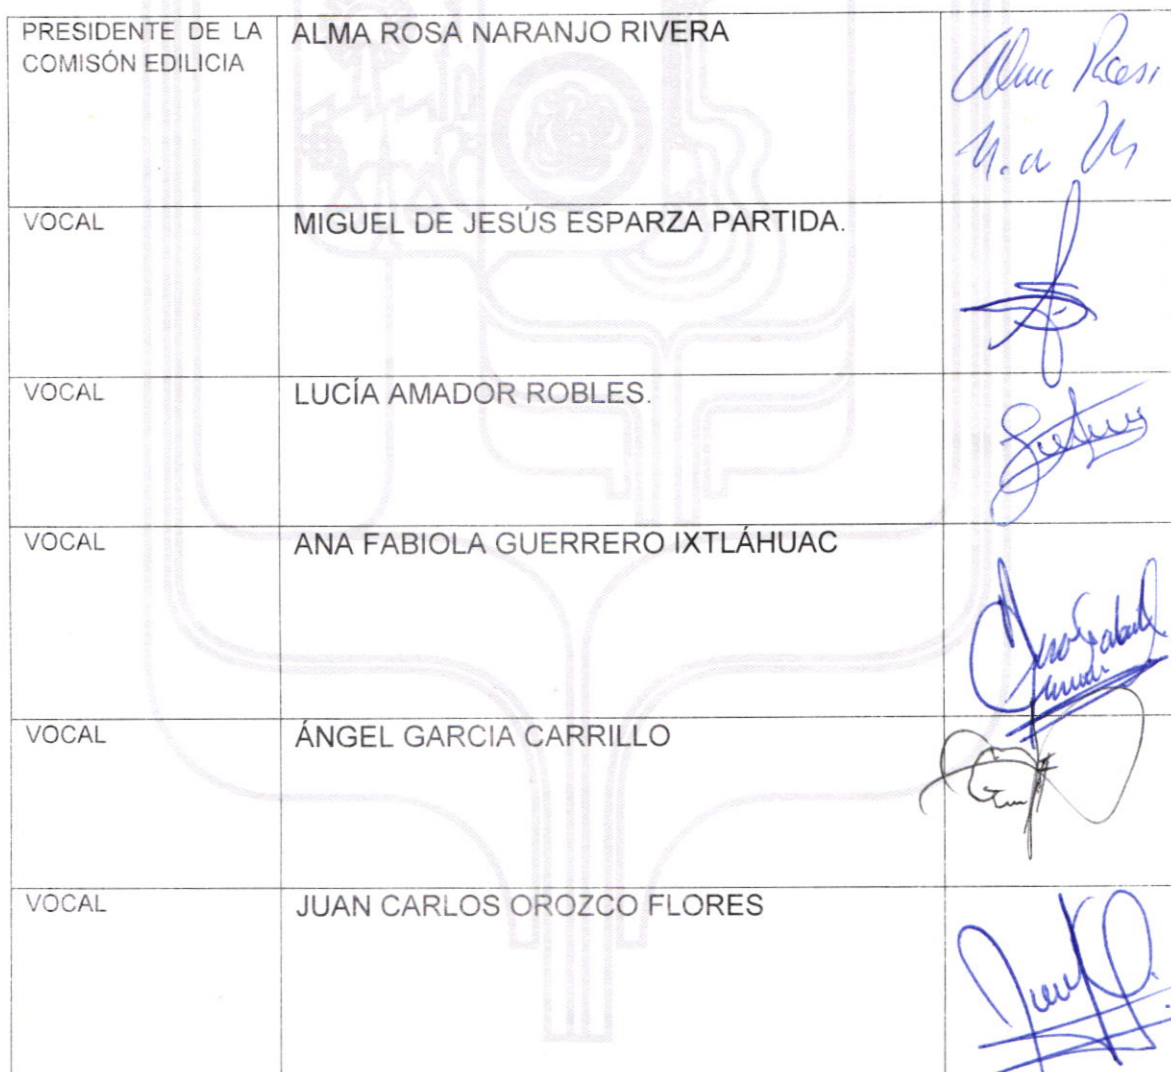 PRESIDENTE DE LA ALMA ROSA NARANJO RIVERA
COMISÓN EDILICIA
Alma Rosa
VOCAL MIGUEL DE JESÚS ESPARZA PARTIDA.
VOCAL LUCÍA AMADOR ROBLES.
VOCAL ANA FABIOLA GUERRERO IXTLÁHUAC
VOCAL ÁNGEL GARCIA CARRILLO
VOCAL JUAN CARLOS OROZCO FLORES